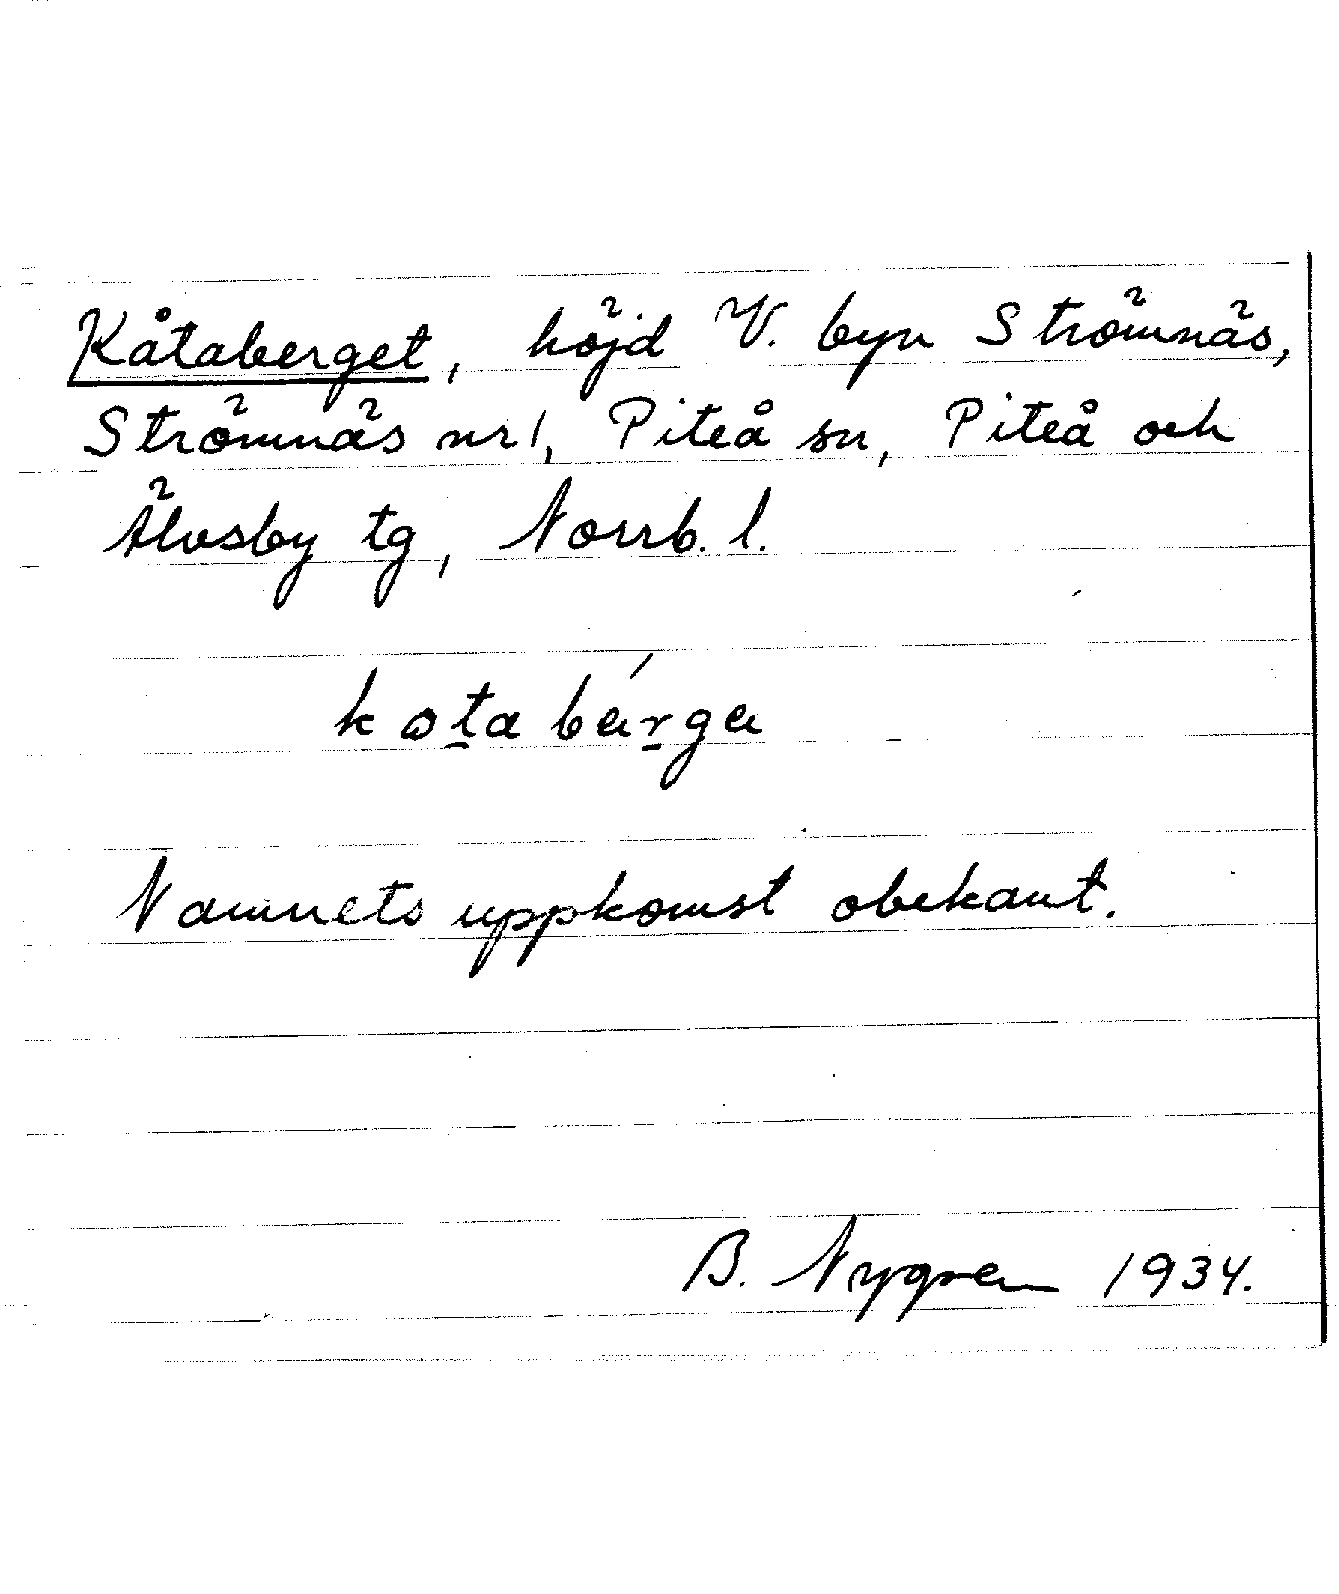 Kåtaberget, höjd V. byn Strömnäs,
Strömnäs nr 1, Piteå sn, Piteå och
Älvsby tg, Norrb. l.
kota bárga
Namnets uppkomst obekant.
B. Nygren 1934.